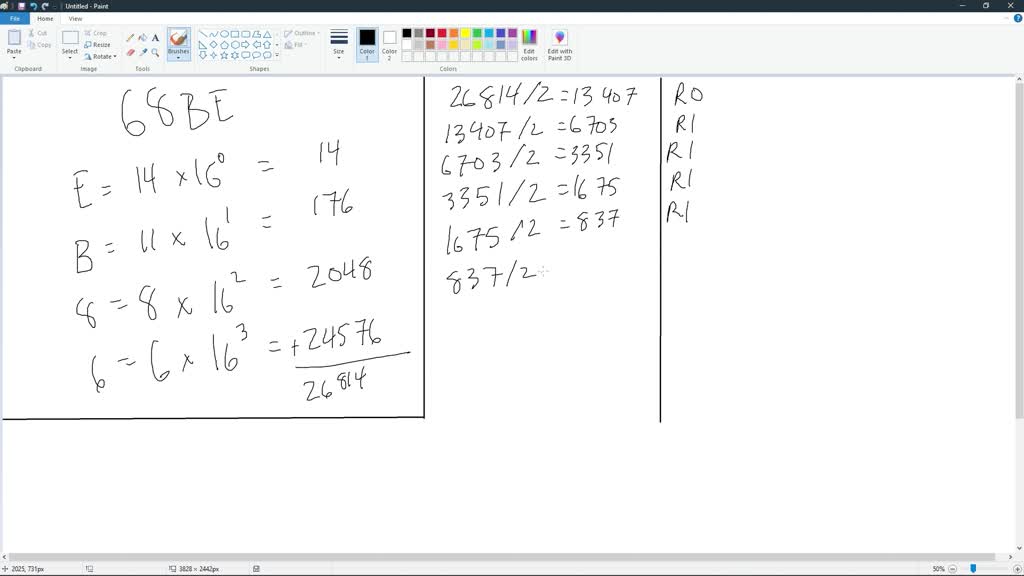 Untitled - Paint
File
Home
View
Paste
Cut
Copy
Clipboard
Select
Crop
Resize
Rotate
Image
A
Tools
Brushes
Outline
Fill
Shapes
Size
Color 1
Color 2
Edit colors
Edit with Paint 3D
Colors
68BE
E = 14 ×16^0 = 14
B = 11 × 16^1 = 176
8 = 8 × 16^2 = 2048
6 = 6 × 16^3 = +24576
26814
26814/2 = 13407 R0
13407/2 = 6703 R1
6703/2 = 3351 R1
3351/2 = 1675 R1
1675/2 = 837 R1
837/2
2025, 731px
3828 × 2442px
50%